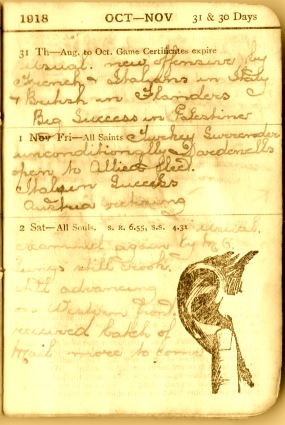 1918 OCT—NOV 31 & 30 Days
31 Th—Aug. to Oct. Game Certificates expire
usual. new offensive by
French & Italians in Italy
& British in Flanders
Big Success in Palestine
1 Nov Fri—All Saints Turkey Surrender
unconditionally Dardenells
open to Allied fleet.
Italian Success
Austria
2 Sat—All Souls. S. R. 6.55, S.S. 4.31 usual.
examined again by M.O.
lungs still crook.
still advancing
on Western front
received batch of
mail more to come